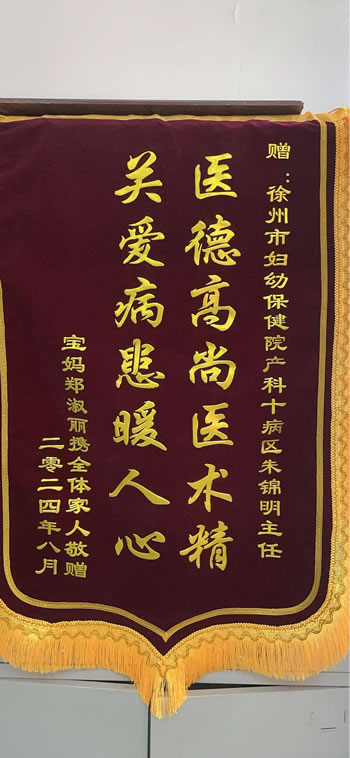 赠：徐州市妇幼保健院产科十病区朱锦明主任
医德高尚医术精
关爱病患暖人心
宝妈郑淑丽携全体家人敬赠
二零二四年八月